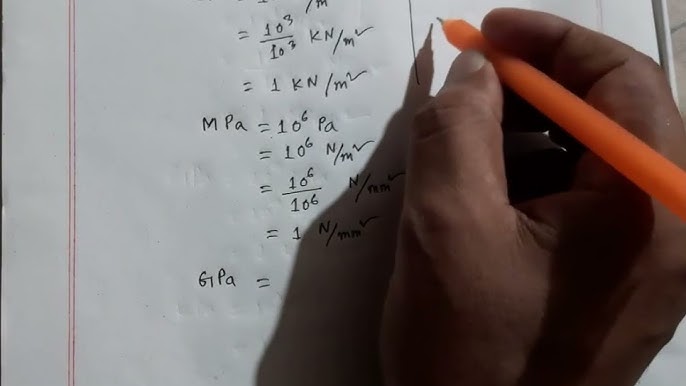 = 1 /m
= 10³/10³ KN/m²
= 1 KN/m²
MPa = 10⁶ Pa
= 10⁶ N/m²
= 10⁶/10⁶ N/mm²
= 1 N/mm²
GPa =